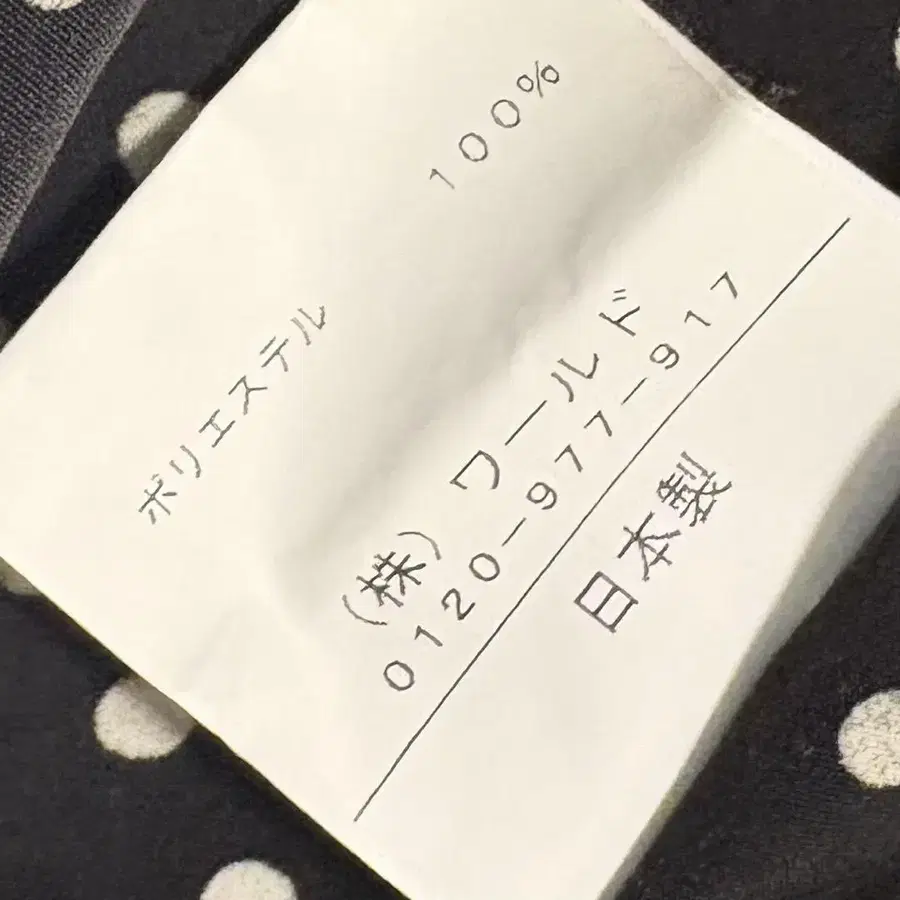 ポリエステル 100%
(株) ワールド
0120-977-917
日本製